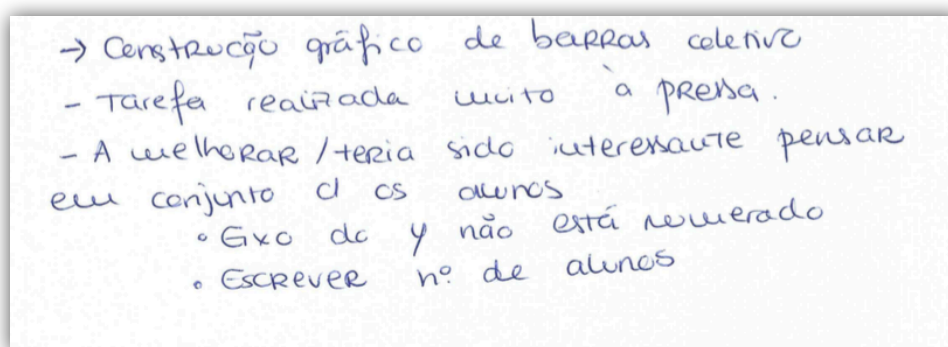 → Construção gráfico de barras coletivo
- Tarefa realizada muito à pressa.
- A melhorar / teria sido interessante pensar
em conjunto c/ os alunos
• Eixo do y não está numerado
• Escrever nº de alunos